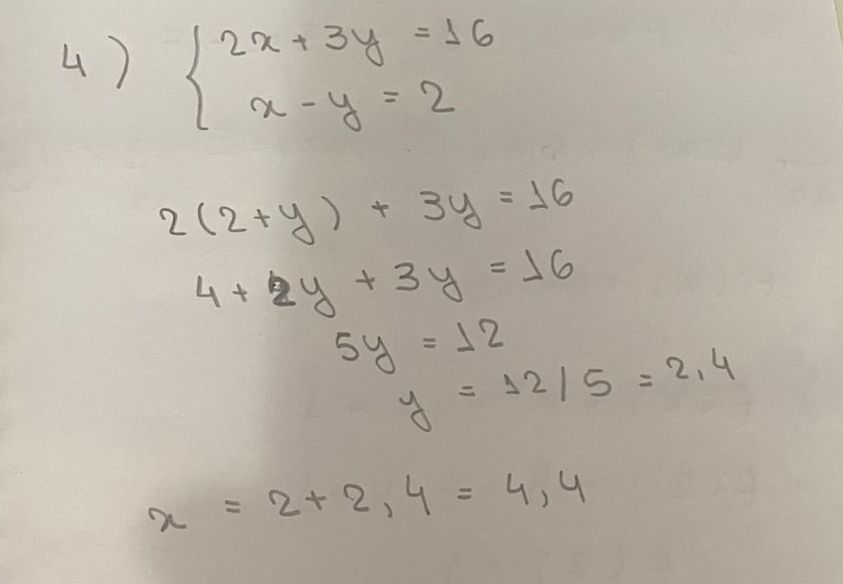 4) { 2x + 3y = 16
x - y = 2
2(2+y) + 3y = 16
4 + 2y + 3y = 16
5y = 12
y = 12/5 = 2,4
x = 2+2,4 = 4,4